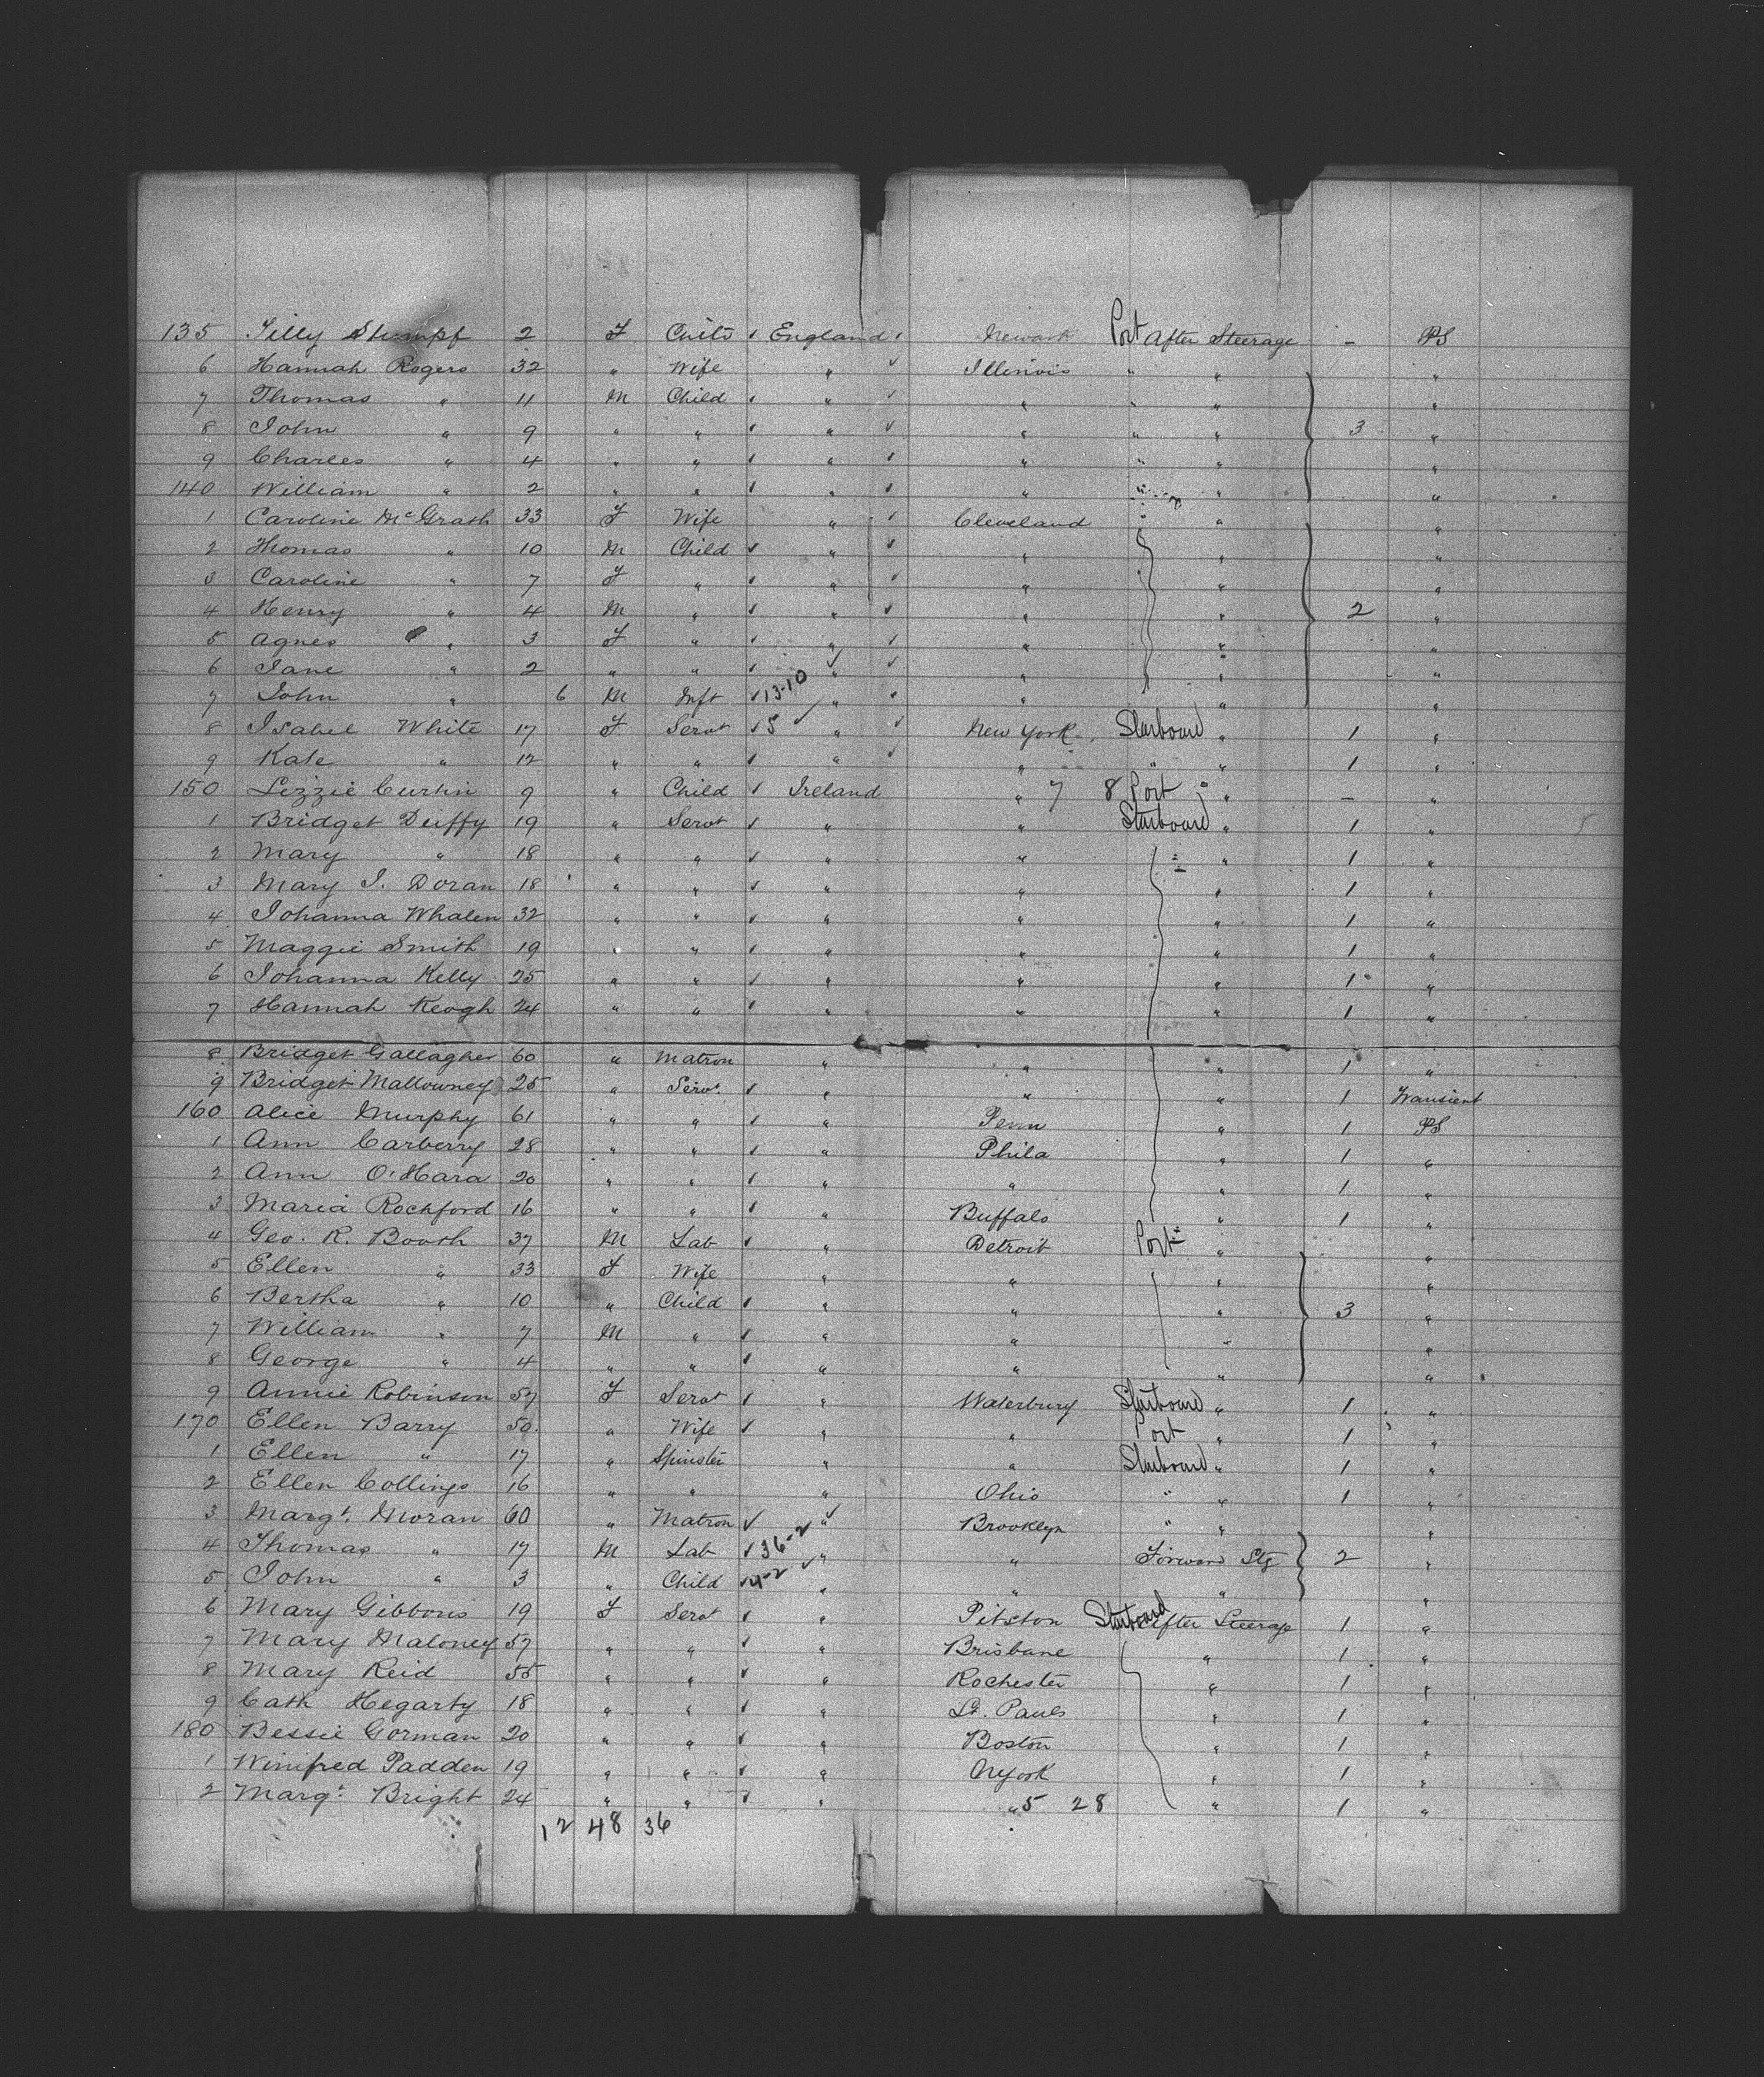 135 Tilly Stumpf 2 F Child ✓ England ✓ Newark Port After Steerage - PS
6 Hannah Rogers 32 " Wife " ✓ Illinois " " "
7 Thomas " 11 M Child ✓ " ✓ " " " "
8 John " 9 " " ✓ " ✓ " " " 3 "
9 Charles " 4 " " ✓ " ✓ " " " "
140 William " 2 " " ✓ " ✓ " " " "
1 Caroline McGrath 33 F Wife " ✓ Cleveland " " "
2 Thomas " 10 M Child ✓ " ✓ " " "
3 Caroline " 7 F " ✓ " ✓ " " "
4 Henry " 4 M " ✓ " ✓ " " 2 "
5 Agnes " 3 F " ✓ " ✓ " " "
6 Jane " 2 " " ✓ " ✓ " " "
7 John " 6 M Inft ✓ 13-10 ✓ " ✓ " " "
8 Isabel White 17 F Servt ✓ 5 ✓ " ✓ New York Starboard " 1 "
9 Kate " 12 " " ✓ " ✓ " " " 1 "
150 Lizzie Curtin 9 " Child ✓ Ireland " 7 8 Port " - "
1 Bridget Duffy 19 " Servt ✓ " " Starboard " 1 "
2 Mary " 18 " " ✓ " " " " 1 "
3 Mary J. Doran 18 " " ✓ " " " 1 "
4 Johanna Whalen 32 " " ✓ " " " 1 "
5 Maggie Smith 19 " " ✓ " " " 1 "
6 Johanna Kelly 25 " " ✓ " " " 1 "
7 Hannah Keogh 24 " " ✓ " " " 1 "
8 Bridget Gallagher 60 " Matron " " " 1 "
9 Bridget Mallowney 25 " Servt ✓ " " " 1 Transient
160 Alice Murphy 61 " " ✓ " Penn " 1 PS
1 Ann Carberry 28 " " ✓ " Phila " 1 "
2 Ann O'Hara 20 " " ✓ " " " 1 "
3 Maria Rochford 16 " " ✓ " Buffalo " 1 "
4 Geo. R. Booth 37 M Lab ✓ " Detroit Port " "
5 Ellen " 33 F Wife " " " "
6 Bertha " 10 " Child ✓ " " " 3 "
7 William " 7 M " ✓ " " " "
8 George " 4 " " ✓ " " " "
9 Annie Robinson 57 F Servt ✓ " Waterbury Starboard " 1 "
170 Ellen Barry 50 " Wife ✓ " " Port " 1 "
1 Ellen " 17 " Spinster " " Starboard " 1 "
2 Ellen Collings 16 " " " Ohio " " 1 "
3 Margt. Moran 60 " Matron ✓ " ✓ Brooklyn " " "
4 Thomas " 17 M Lab ✓ 36-2 " " Forward Stg 2 "
5 John " 3 " Child ✓ 4-2 ✓ " " " "
6 Mary Gibbons 19 F Servt ✓ " Pitston Starboard After Steerage 1 "
7 Mary Maloney 57 " " ✓ " Brisbane " 1 "
8 Mary Reid 55 " " ✓ " Rochester " 1 "
9 Cath Hegarty 18 " " ✓ " St. Pauls " 1 "
180 Bessie Gorman 20 " " ✓ " Boston " 1 "
1 Winifred Padden 19 " " ✓ " NYork " 1 "
2 Margt. Bright 24 " " ✓ " " 5 28 " 1 "
12 48 36